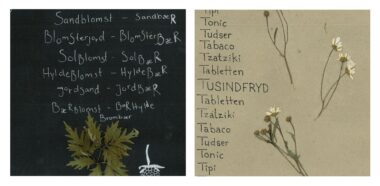 Sandblomst - SandbæR
Blomsterjord - BlomsterBæR
SolBlomst - SolBæR
HyldeBlomst - HyldeBæR
jordjord - JordBæR
BæRBlomst - BæRHylde
Brombær
Tipi
Tonic
Tudser
Tabaco
Tzatziki
Tabletten
TUSINDFRYD
Tabletten
Tzatziki
Tabaco
Tudser
Tonic
Tipi